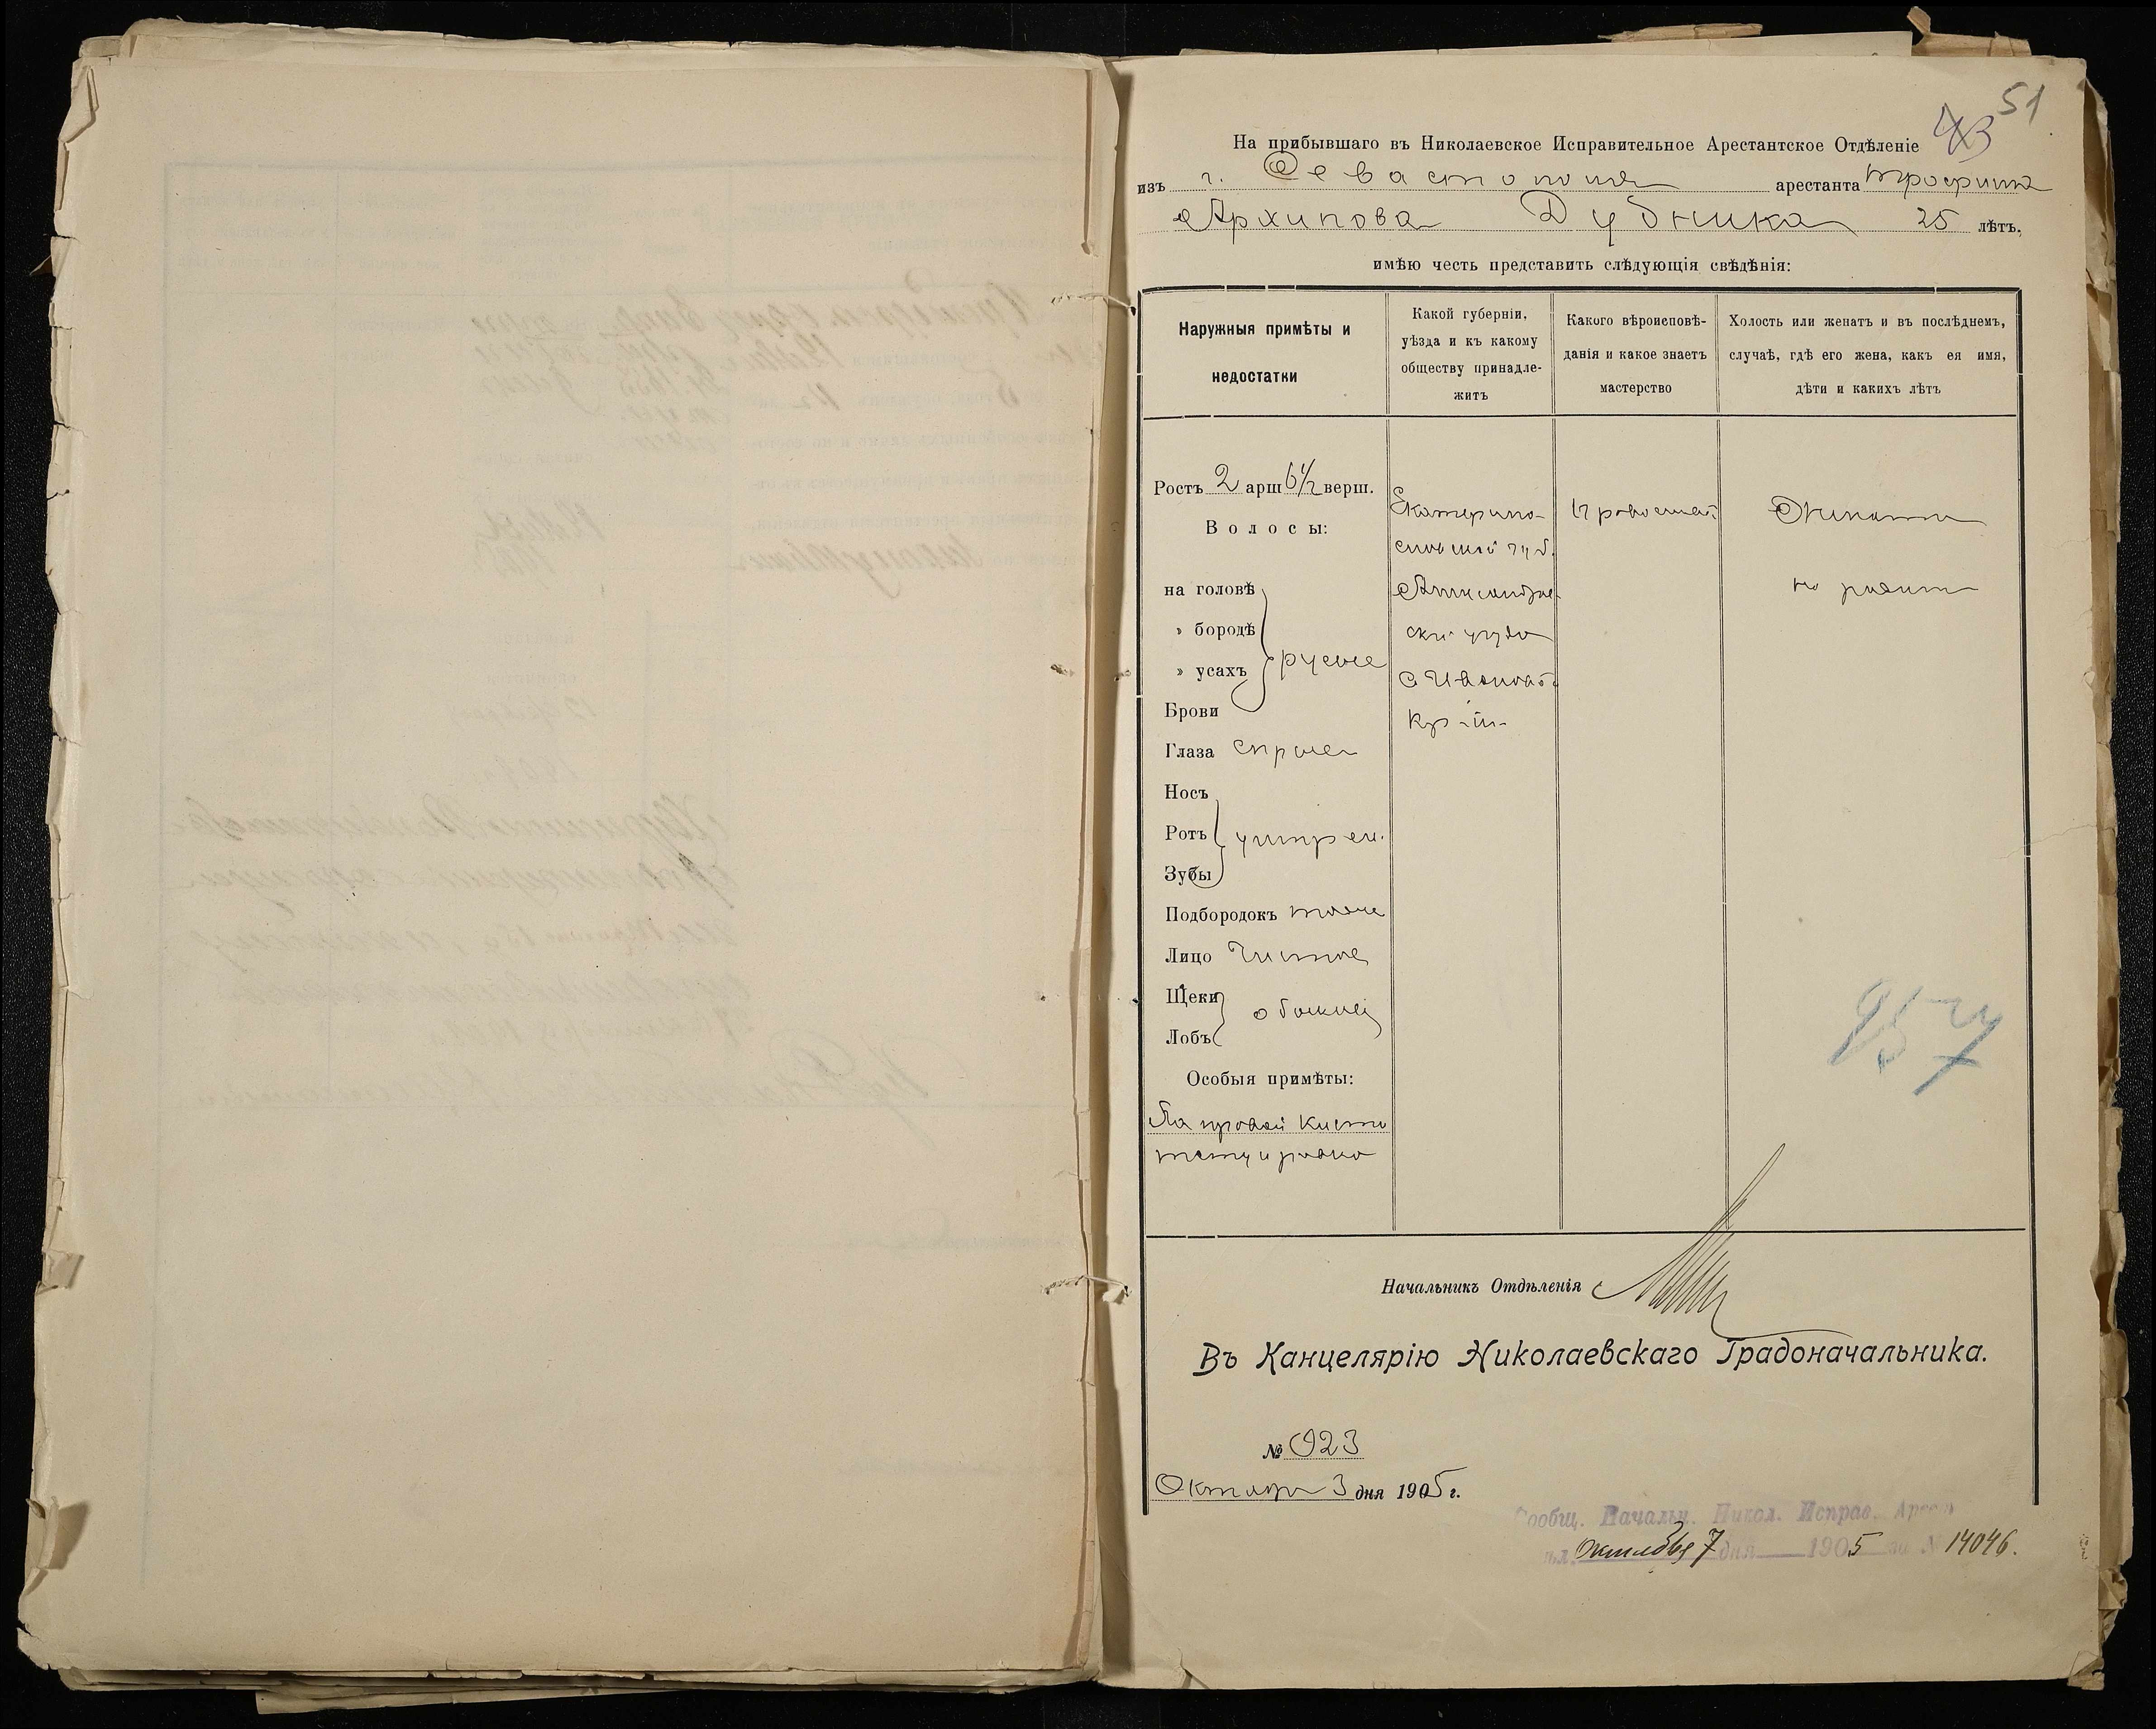 51
43
На прибывшаго въ Николаевское Исправительное Арестантское Отдѣленіе
изъ г. Севастополя арестанта Трофима
Архипова Дубника 25 лѣтъ,
имѣю честь представить слѣдующія свѣдѣнія:
Наружныя примѣты и
недостатки
Какой губерніи,
уѣзда и къ какому
обществу принадле-
житъ
Какого вѣроисповѣ-
данія и какое знаетъ
мастерство
Холость или женатъ и въ послѣднемъ,
случаѣ, гдѣ его жена, какъ ея имя,
дѣти и какихъ лѣтъ
Ростъ 2 арш 6 1/2 верш.
Волосы:
на головѣ
" бородѣ
" усахъ русые
Брови
Глаза сѣрые
Носъ
Ротъ умѣрен.
Зубы
Подбородокъ тоже
Лицо Чистое
Щеки
Лобъ обыкнов
Особыя примѣты:
На правой кисти
татуировка
Екатерино-
славской губ.
Александров-
ски уѣзда
с Ивановк
кр-нъ
Православ
Женатъ
Начальникъ Отдѣленія
Въ Канцелярію Николаевскаго Градоначальника.
№ 923
Октября 3 дня 1905 г.
Сообщ. Начальн. Никол. Исправ. Арест
октября 7 дня 1905 за № 14046.